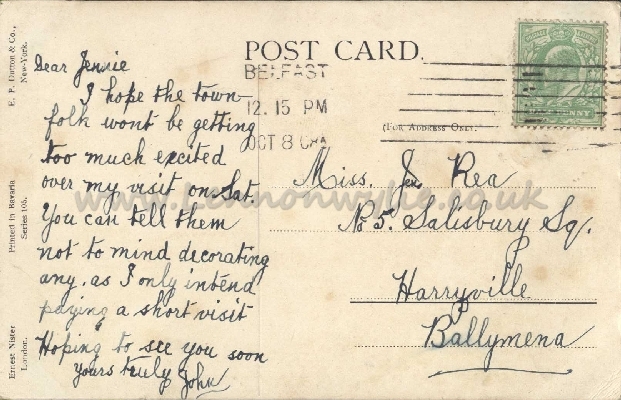 E. P. Dutton & Co.,
New-York.
Printed in Bavaria
Series 106.
Ernest Nister
London.
POST CARD.
BELFAST
12.15 PM
OCT 8
(FOR ADDRESS ONLY.)
Dear Jennie
I hope the town
folk wont be getting
too much excited
over my visit on Sat.
You can tell them
not to mind decorating
any, as I only intend
paying a short visit
Hoping to see you soon
Yours truly John
Miss. Rea
No 5. Salisbury Sq.
Harryville
Ballymena